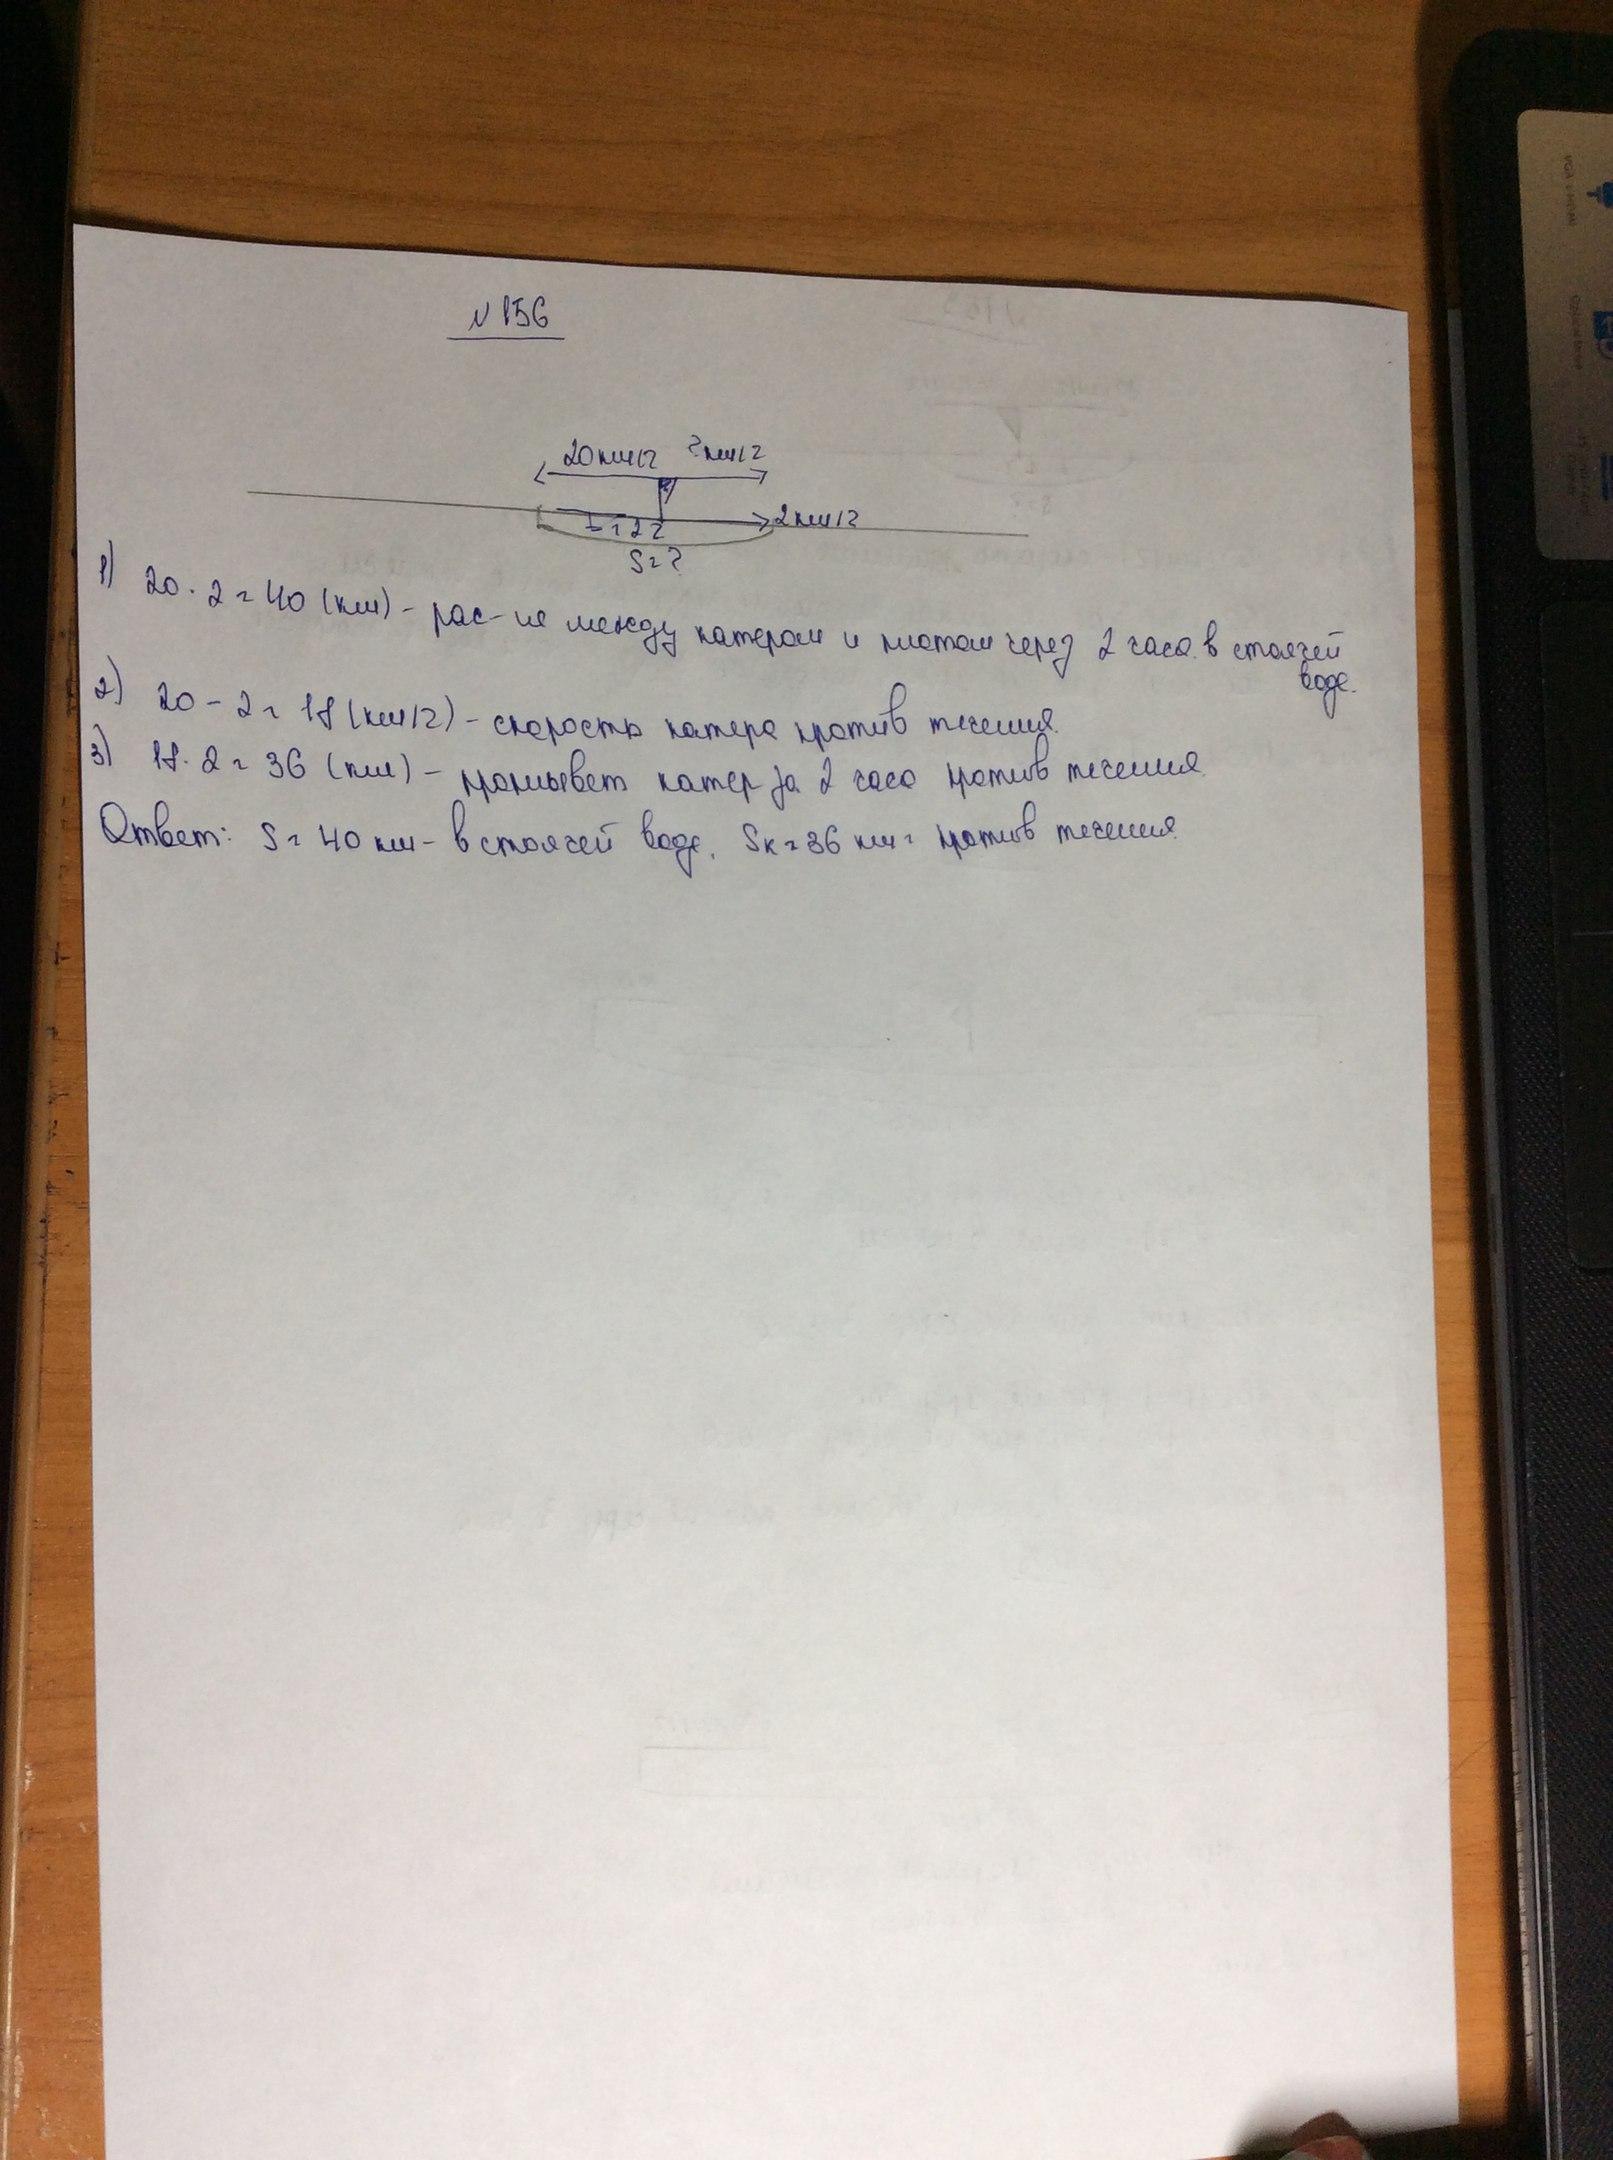 № 156
20 км/ч ? км/ч
2 км/ч
t = 2 ч
S = ?
1) 20 · 2 = 40 (км) - рас-ие между катером и плотом через 2 часа в стоячей
воде.
2) 20 - 2 = 18 (км/ч) - скорость катера против течения.
3) 18 · 2 = 36 (км) - проплывет катер за 2 часа против течения.
Ответ: S = 40 км - в стоячей воде, Sк = 36 км = против течения.